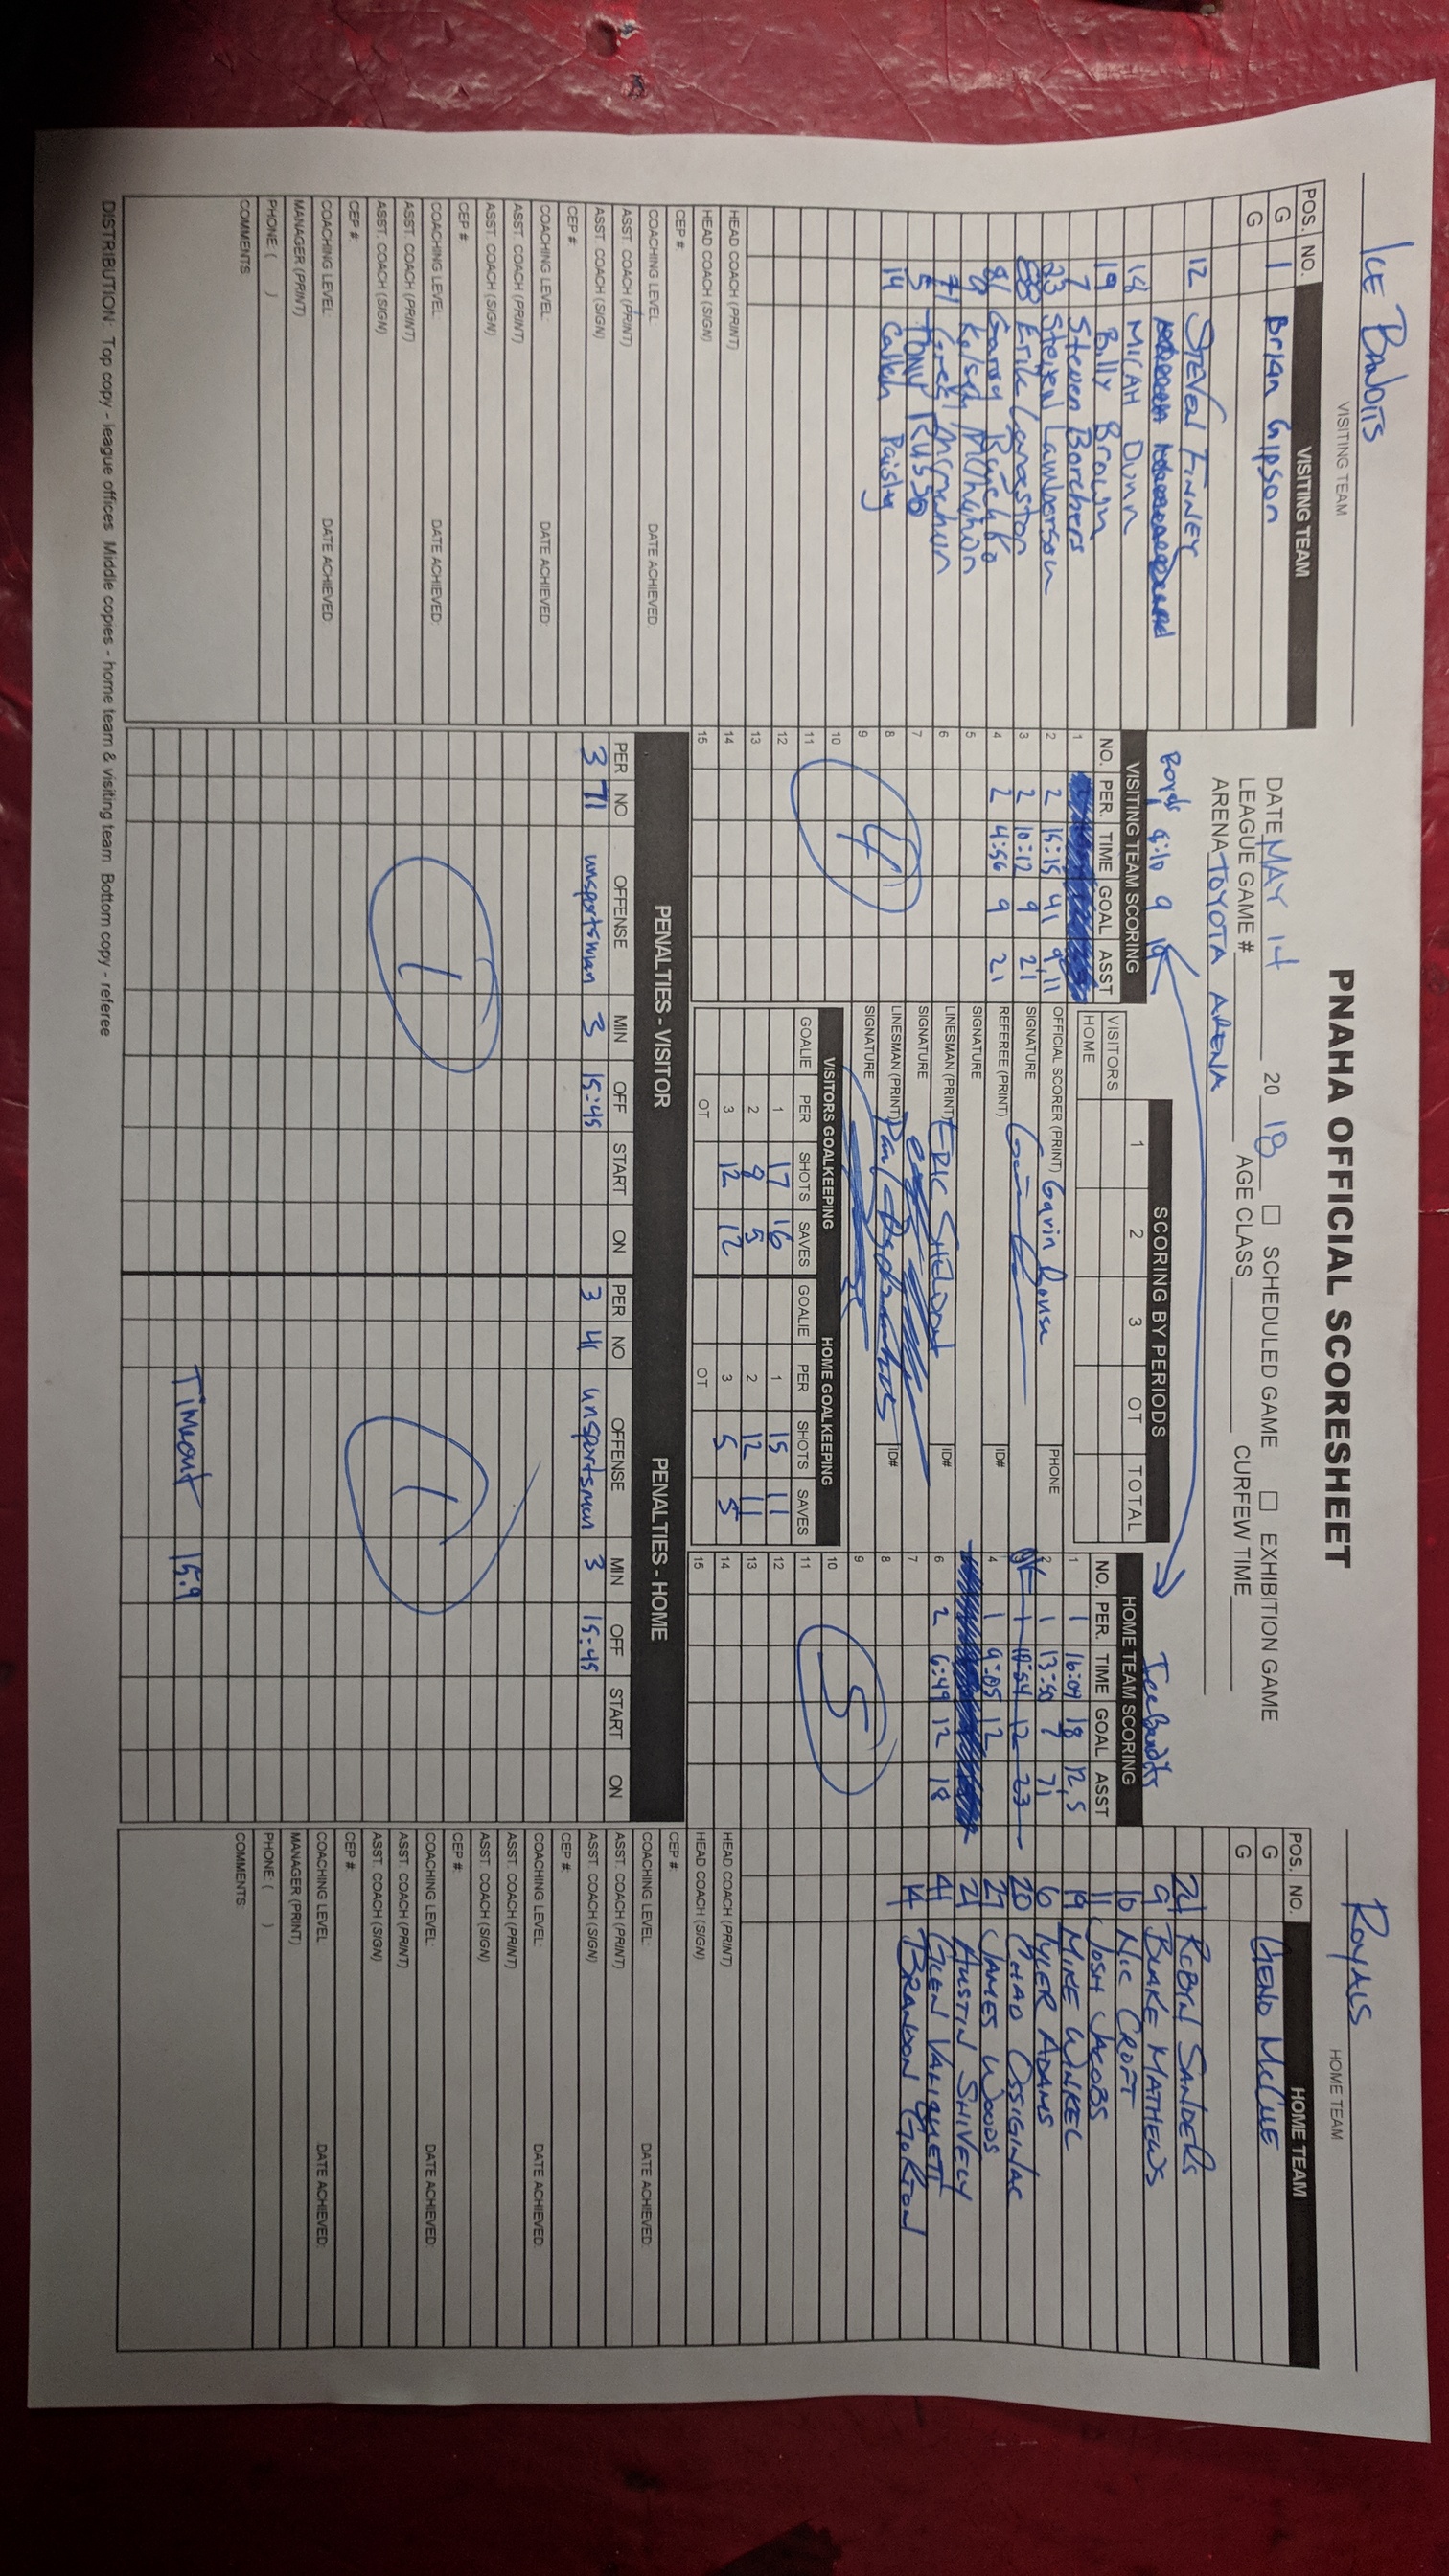 PNAHA OFFICIAL SCORESHEET
ICE BANDITS
VISITING TEAM
DATE MAY 14 20 18 ☐ SCHEDULED GAME ☐ EXHIBITION GAME
LEAGUE GAME # AGE CLASS CURFEW TIME
ARENA TOYOTA ARENA
ROYALS
HOME TEAM
POS. NO. VISITING TEAM
G 1 Brian Gipson
G
12 STEVEN FINNEY
18 MICAH Dunn
19 Billy Brown
7 Steven Borchers
23 Steven Lamberson
88 Erik Langston
81 Garry
Kelsey McMahon
71 McMahon
5 TONY RUSSO
14 Callen Paisley
HEAD COACH (PRINT)
HEAD COACH (SIGN)
CEP #:
COACHING LEVEL: DATE ACHIEVED:
ASST. COACH (PRINT)
ASST. COACH (SIGN)
CEP #:
COACHING LEVEL: DATE ACHIEVED:
ASST. COACH (PRINT)
ASST. COACH (SIGN)
CEP #:
COACHING LEVEL: DATE ACHIEVED:
ASST. COACH (PRINT)
ASST. COACH (SIGN)
CEP #:
COACHING LEVEL: DATE ACHIEVED:
MANAGER (PRINT)
PHONE: ( )
COMMENTS:
Royals 9
VISITING TEAM SCORING
NO. PER. TIME GOAL ASST
1
2 2 15:15 41 9,11
3 2 10:12 9 21
4 2 4:56 9 21
5
6
7
8
9
10
11
12
13
14
15
4
SCORING BY PERIODS
1 2 3 OT TOTAL
VISITORS
HOME
OFFICIAL SCORER (PRINT) Gavin Rouse PHONE
SIGNATURE
REFEREE (PRINT) ID#
SIGNATURE
LINESMAN (PRINT) ERIC SHELDON ID#
SIGNATURE
LINESMAN (PRINT) ID#
SIGNATURE
VISITORS GOALKEEPING HOME GOALKEEPING
GOALIE PER SHOTS SAVES GOALIE PER SHOTS SAVES
1 17 16 1 15 11
2 5 2 12 11
3 12 12 3 5 5
OT OT
Ice Bandits
HOME TEAM SCORING
NO. PER. TIME GOAL ASST
1 1 16:09 18 12,5
2 1 13:50 7 71
1 12 23
4 1 9:05 12
6 2 6:49 12 18
7
8
9
10
11
12
13
14
15
5
POS. NO. HOME TEAM
G GENO McCUE
G
ROBYN SANDERS
9 BLAKE MATHEWS
16 NIC CROFT
11 JOSH JACOBS
19 MIKE WINKEL
6 TYLER ADAMS
20 CHAD OSSIGINAC
27 JAMES WOODS
21 AUSTIN SHIVELY
41 GLEN VALIQUETT
14 BRANDON GORTON
HEAD COACH (PRINT)
HEAD COACH (SIGN)
CEP #:
COACHING LEVEL: DATE ACHIEVED:
ASST. COACH (PRINT)
ASST. COACH (SIGN)
CEP #:
COACHING LEVEL: DATE ACHIEVED:
ASST. COACH (PRINT)
ASST. COACH (SIGN)
CEP #:
COACHING LEVEL: DATE ACHIEVED:
ASST. COACH (PRINT)
ASST. COACH (SIGN)
CEP #:
COACHING LEVEL: DATE ACHIEVED:
MANAGER (PRINT)
PHONE: ( )
COMMENTS:
PENALTIES - VISITOR PENALTIES - HOME
PER NO OFFENSE MIN OFF START ON PER NO OFFENSE MIN OFF START ON
3 71 unsportsman 3 15:45 3 41 unsportsman 3 15:45
1 1
Timeout 15.9
DISTRIBUTION: Top copy - league offices Middle copies - home team & visiting team Bottom copy - referee